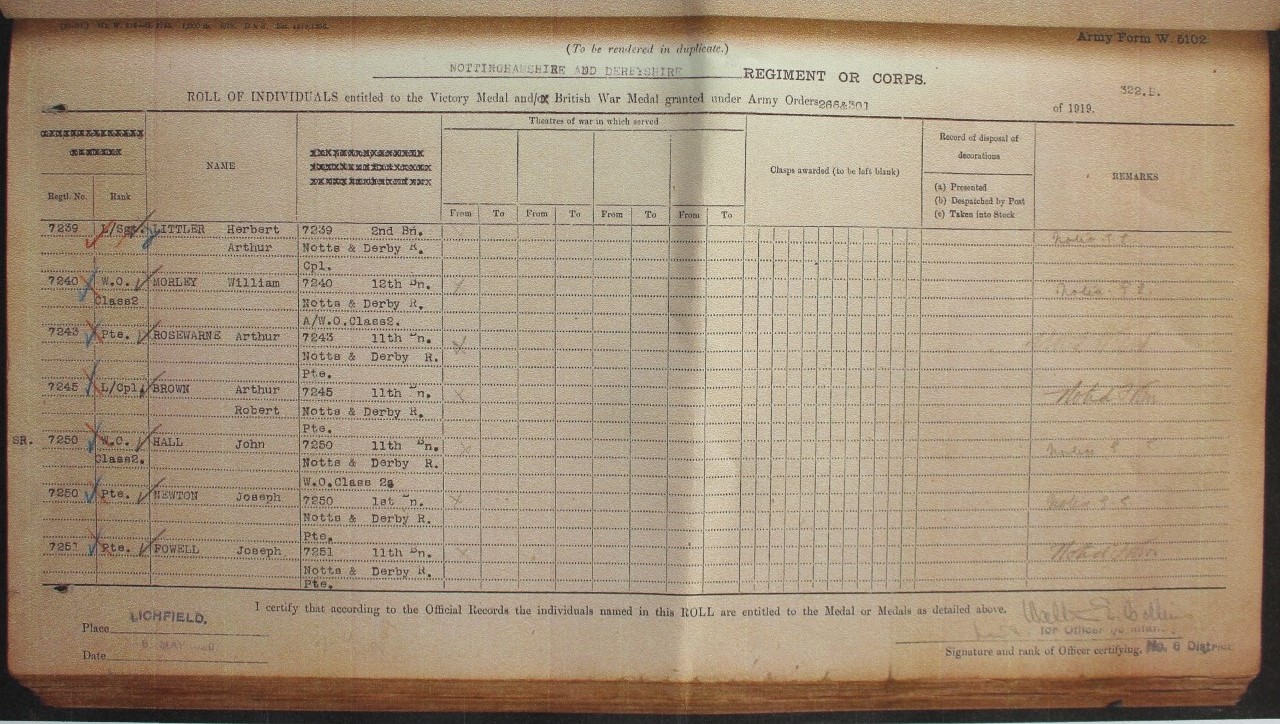 Army Form W. 5102
(To be rendered in duplicate.)
NOTTINGHAMSHIRE AND DERBYSHIRE REGIMENT OR CORPS.
322.B.
ROLL OF INDIVIDUALS entitled to the Victory Medal and/or British War Medal granted under Army Orders 266&301 of 1919.
Theatres of war in which served
Record of disposal of
decorations
NAME
Clasps awarded (to be left blank)
REMARKS
(a) Presented
(b) Despatched by Post
(c) Taken into Stock
Regtl. No. Rank
From To From To From To From To
7239 L/Sgt. LITTLER Herbert 7239 2nd Bn.
Arthur Notts & Derby R.
Cpl.
7240 W.O. MORLEY William 7240 12th Bn.
Class2 Notts & Derby R.
A/W.O.Class2.
7243 Pte. ROSEWARNE Arthur 7243 11th Bn.
Notts & Derby R.
Pte.
7245 L/Cpl. BROWN Arthur 7245 11th Bn.
Robert Notts & Derby R.
Pte.
SR. 7250 W.O. HALL John 7250 11th Bn.
Class2. Notts & Derby R.
W.O.Class 2.
7250 Pte. NEWTON Joseph 7250 1st Bn.
Notts & Derby R.
Pte.
7251 Pte. POWELL Joseph 7251 11th Bn.
Notts & Derby R.
Pte.
I certify that according to the Official Records the individuals named in this ROLL are entitled to the Medal or Medals as detailed above.
Place LICHFIELD.
for Officer
Date MAY
Signature and rank of Officer certifying. No. 6 District